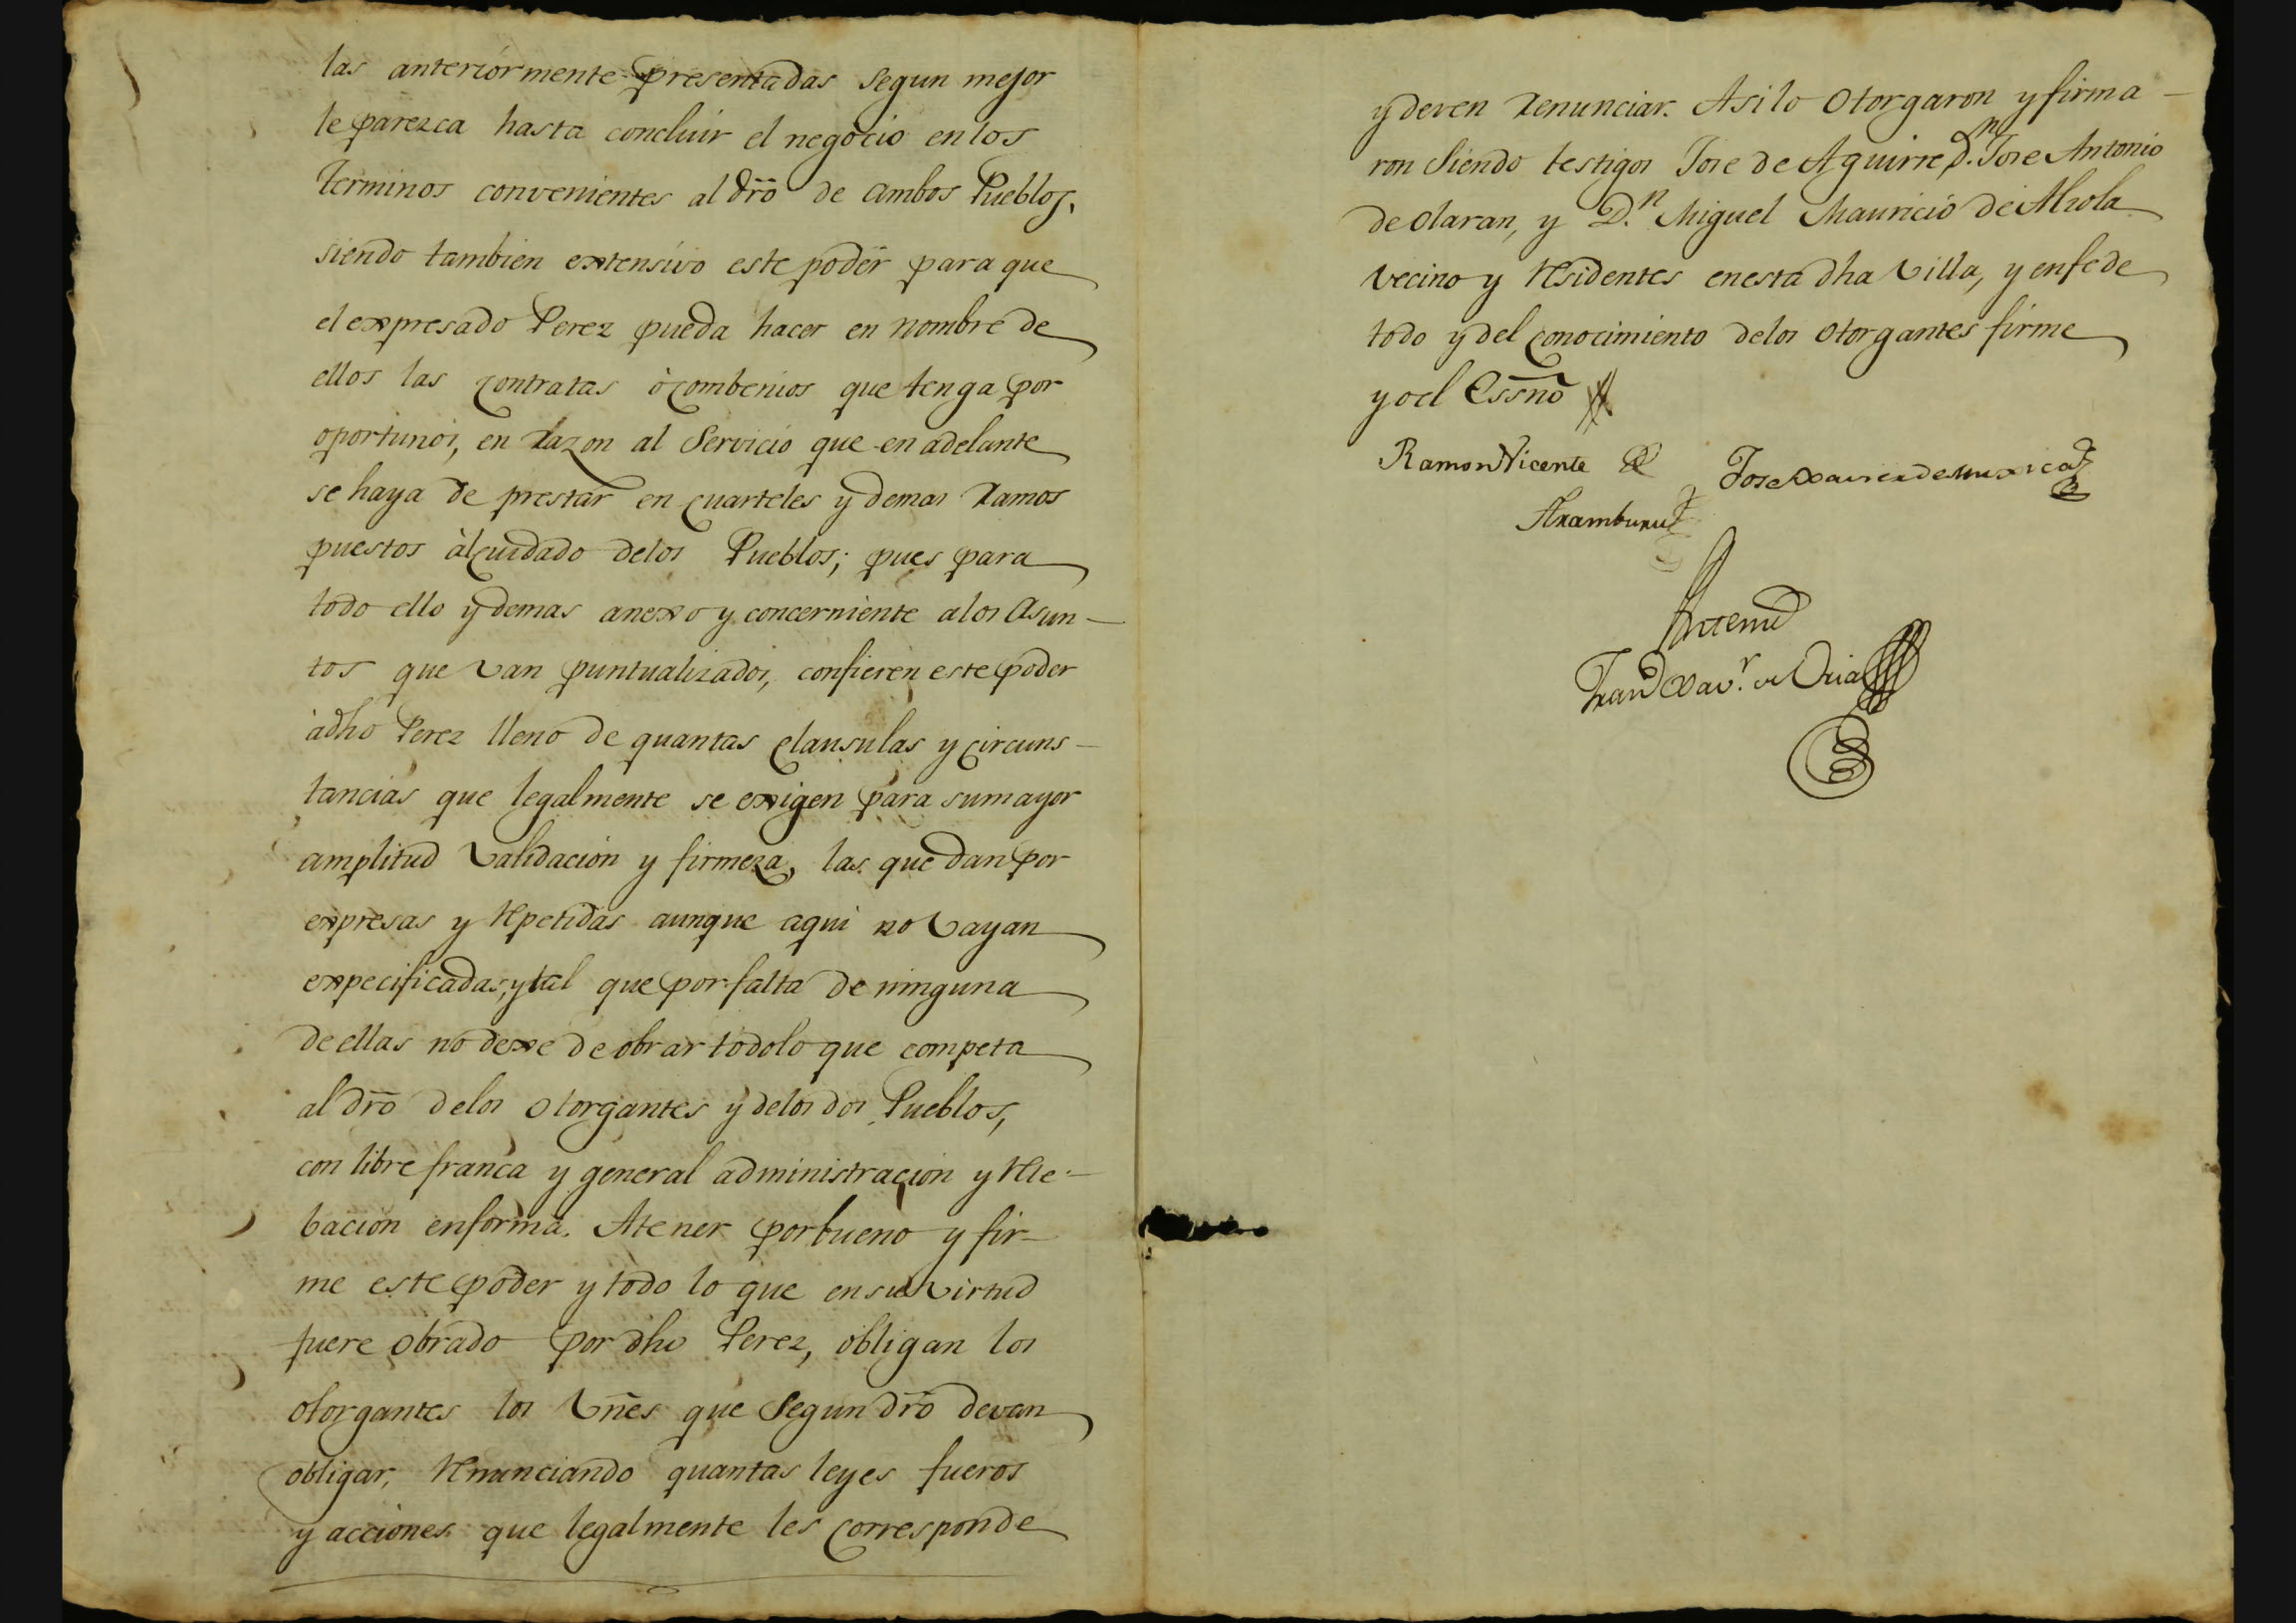 las anteriórmente presentadas segun mejor
le parezca hasta concluir el negocio en los
terminos convenientes al dr̃o de ambos Pueblos,
siendo tambien extensivo este poder para que
el expresado Perez pueda hacer en nombre de
ellos las contratas ò combenios que tenga por
oportunos, en razon al Servicio que en adelante
se haya de prestar en cuarteles y demas ramos
puestos àl cuidado delos Pueblos; pues para
todo ello y demas anexo y concerniente alos asun-
tos que van puntualizados, confieren este poder
àdho Perez lleno de quantas clausulas y circuns-
tancias que legalmente se exigen para sumayor
amplitud validacion y firmeza, las que dan por
expresas y repetidas aunque aqui no vayan
expecificadas, y tal que por falta de ninguna
de ellas no dexe de obrar todolo que competa
al dr̃o delos otorgantes y delos dos Pueblos,
con libre franca y general administracion y rele-
bacion enforma. Atener porbueno y fir-
me este poder y todo lo que ensu virtud
fuere obrado por dho Perez, obligan los
otorgantes los vñes que segun dr̃o devan
obligar, renunciando quantas leyes fueros
y acciones que legalmente les corresponde
y deven renunciar. Asi lo otorgaron y firma-
ron siendo testigos Jose de Aguirre, d.n Jose Antonio
de Olaran, y D.n Miguel Mauricio de Alzola
vecino y residentes enesta dha villa, y enfe de
todo y del conocimiento delos otorgantes firme
yo el Essnõ
Ramon Vicente de Jose Xavier de Muxica
Aramburu
Antemi
Fran.co Xav.r de Oria